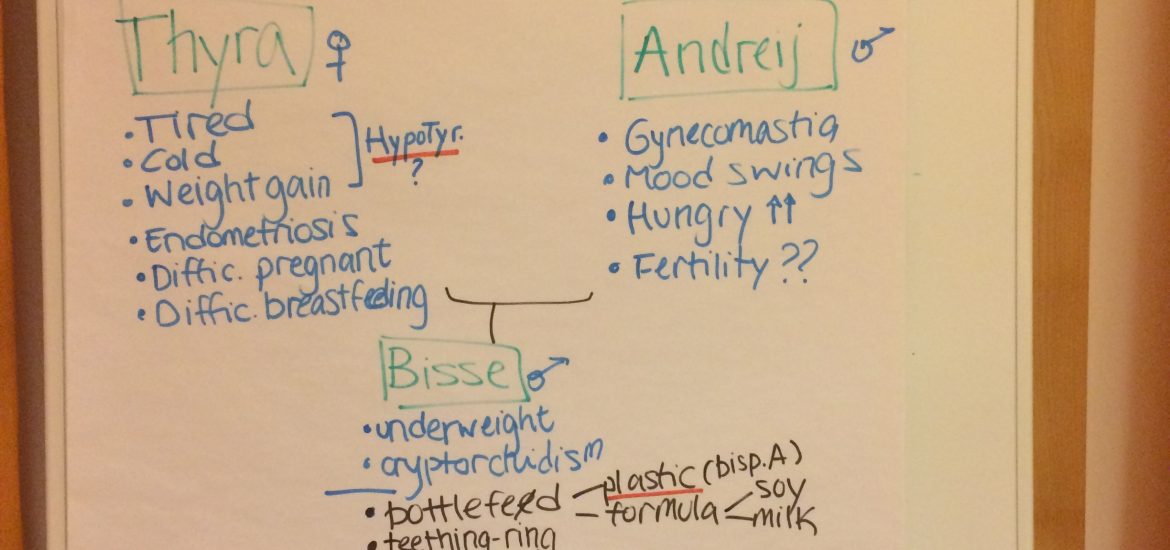 Thyra ♀
• Tired
• Cold
• Weight gain
HypoTyr.
?
• Endometriosis
• Diffic. pregnant
• Diffic. breastfeeding
Andreij ♂
• Gynecomastia
• Mood swings
• Hungry ↑↑
• Fertility ??
Bisse ♂
• underweight
• cryptorchidism
• bottlefeed
plastic (bisp.A)
formula
soy
milk
• teething-ring